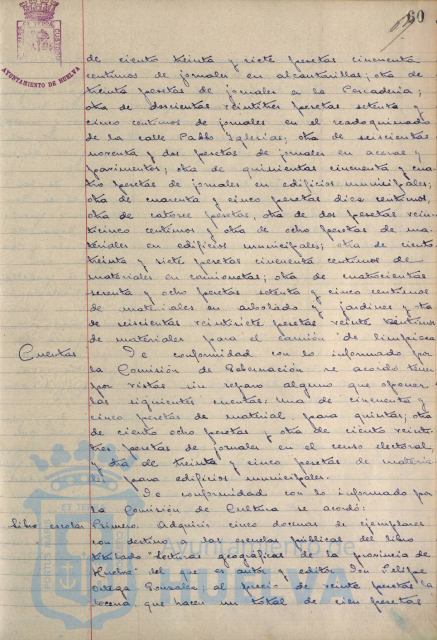 60
AYUNTAMIENTO DE HUELVA
de ciento treinta y siete pesetas cincuenta
centimos de jornales en alcantarillas; otra de
treinta pesetas de jornales a la
otra de doscientas veintitres pesetas setenta y
cinco centimos de jornales en el readoquinado
de la calle Pablo Iglesias; otra de seiscientas
noventa y dos pesetas de jornales en aceras y
pavimentos; otra de quinientas cincuenta y cua
tro pesetas de jornales en edificios municipales;
otra de cuarenta y cinco pesetas diez centimos,
otra de catorce pesetas, otra de dos pesetas vein
ticinco centimos y otra de ocho pesetas de ma-
teriales en edificios municipales; otra de ciento
treinta y siete pesetas cincuenta centimos de
materiales en camionetas; otra de cuatrocientas
y ocho pesetas setenta y cinco centimos
de materiales en arbolado y jardines y otra
de seiscientas veintisiete pesetas veinte centimos
de materiales para el camión de limpieza
Cuentas
De conformidad con lo informado por
la Comisión de Gobernación se acordó tener
por vistas sin reparo alguno que oponer
las siguientes cuentas: una de cincuenta y
cinco pesetas de material para quintas; otra
de ciento ocho pesetas y otra de ciento veinti-
tres pesetas de jornales en el censo electoral
y otra de treinta y cinco pesetas de materia
les para edificios municipales.
De conformidad con lo informado por
la Comisión de Cultura se acordó:
libro escolar
Primero. Adquirir cinco docenas de ejemplares
con destino a las escuelas públicas del libro
titulado "Lecturas geográficas de la provincia de
Huelva" del que es autor y editor Don Felipe
Ortega González; al precio de veinte pesetas la
docena, que hacen un total de cien pesetas
PORTUS MARIS
Ayuntamiento de
HUELVA